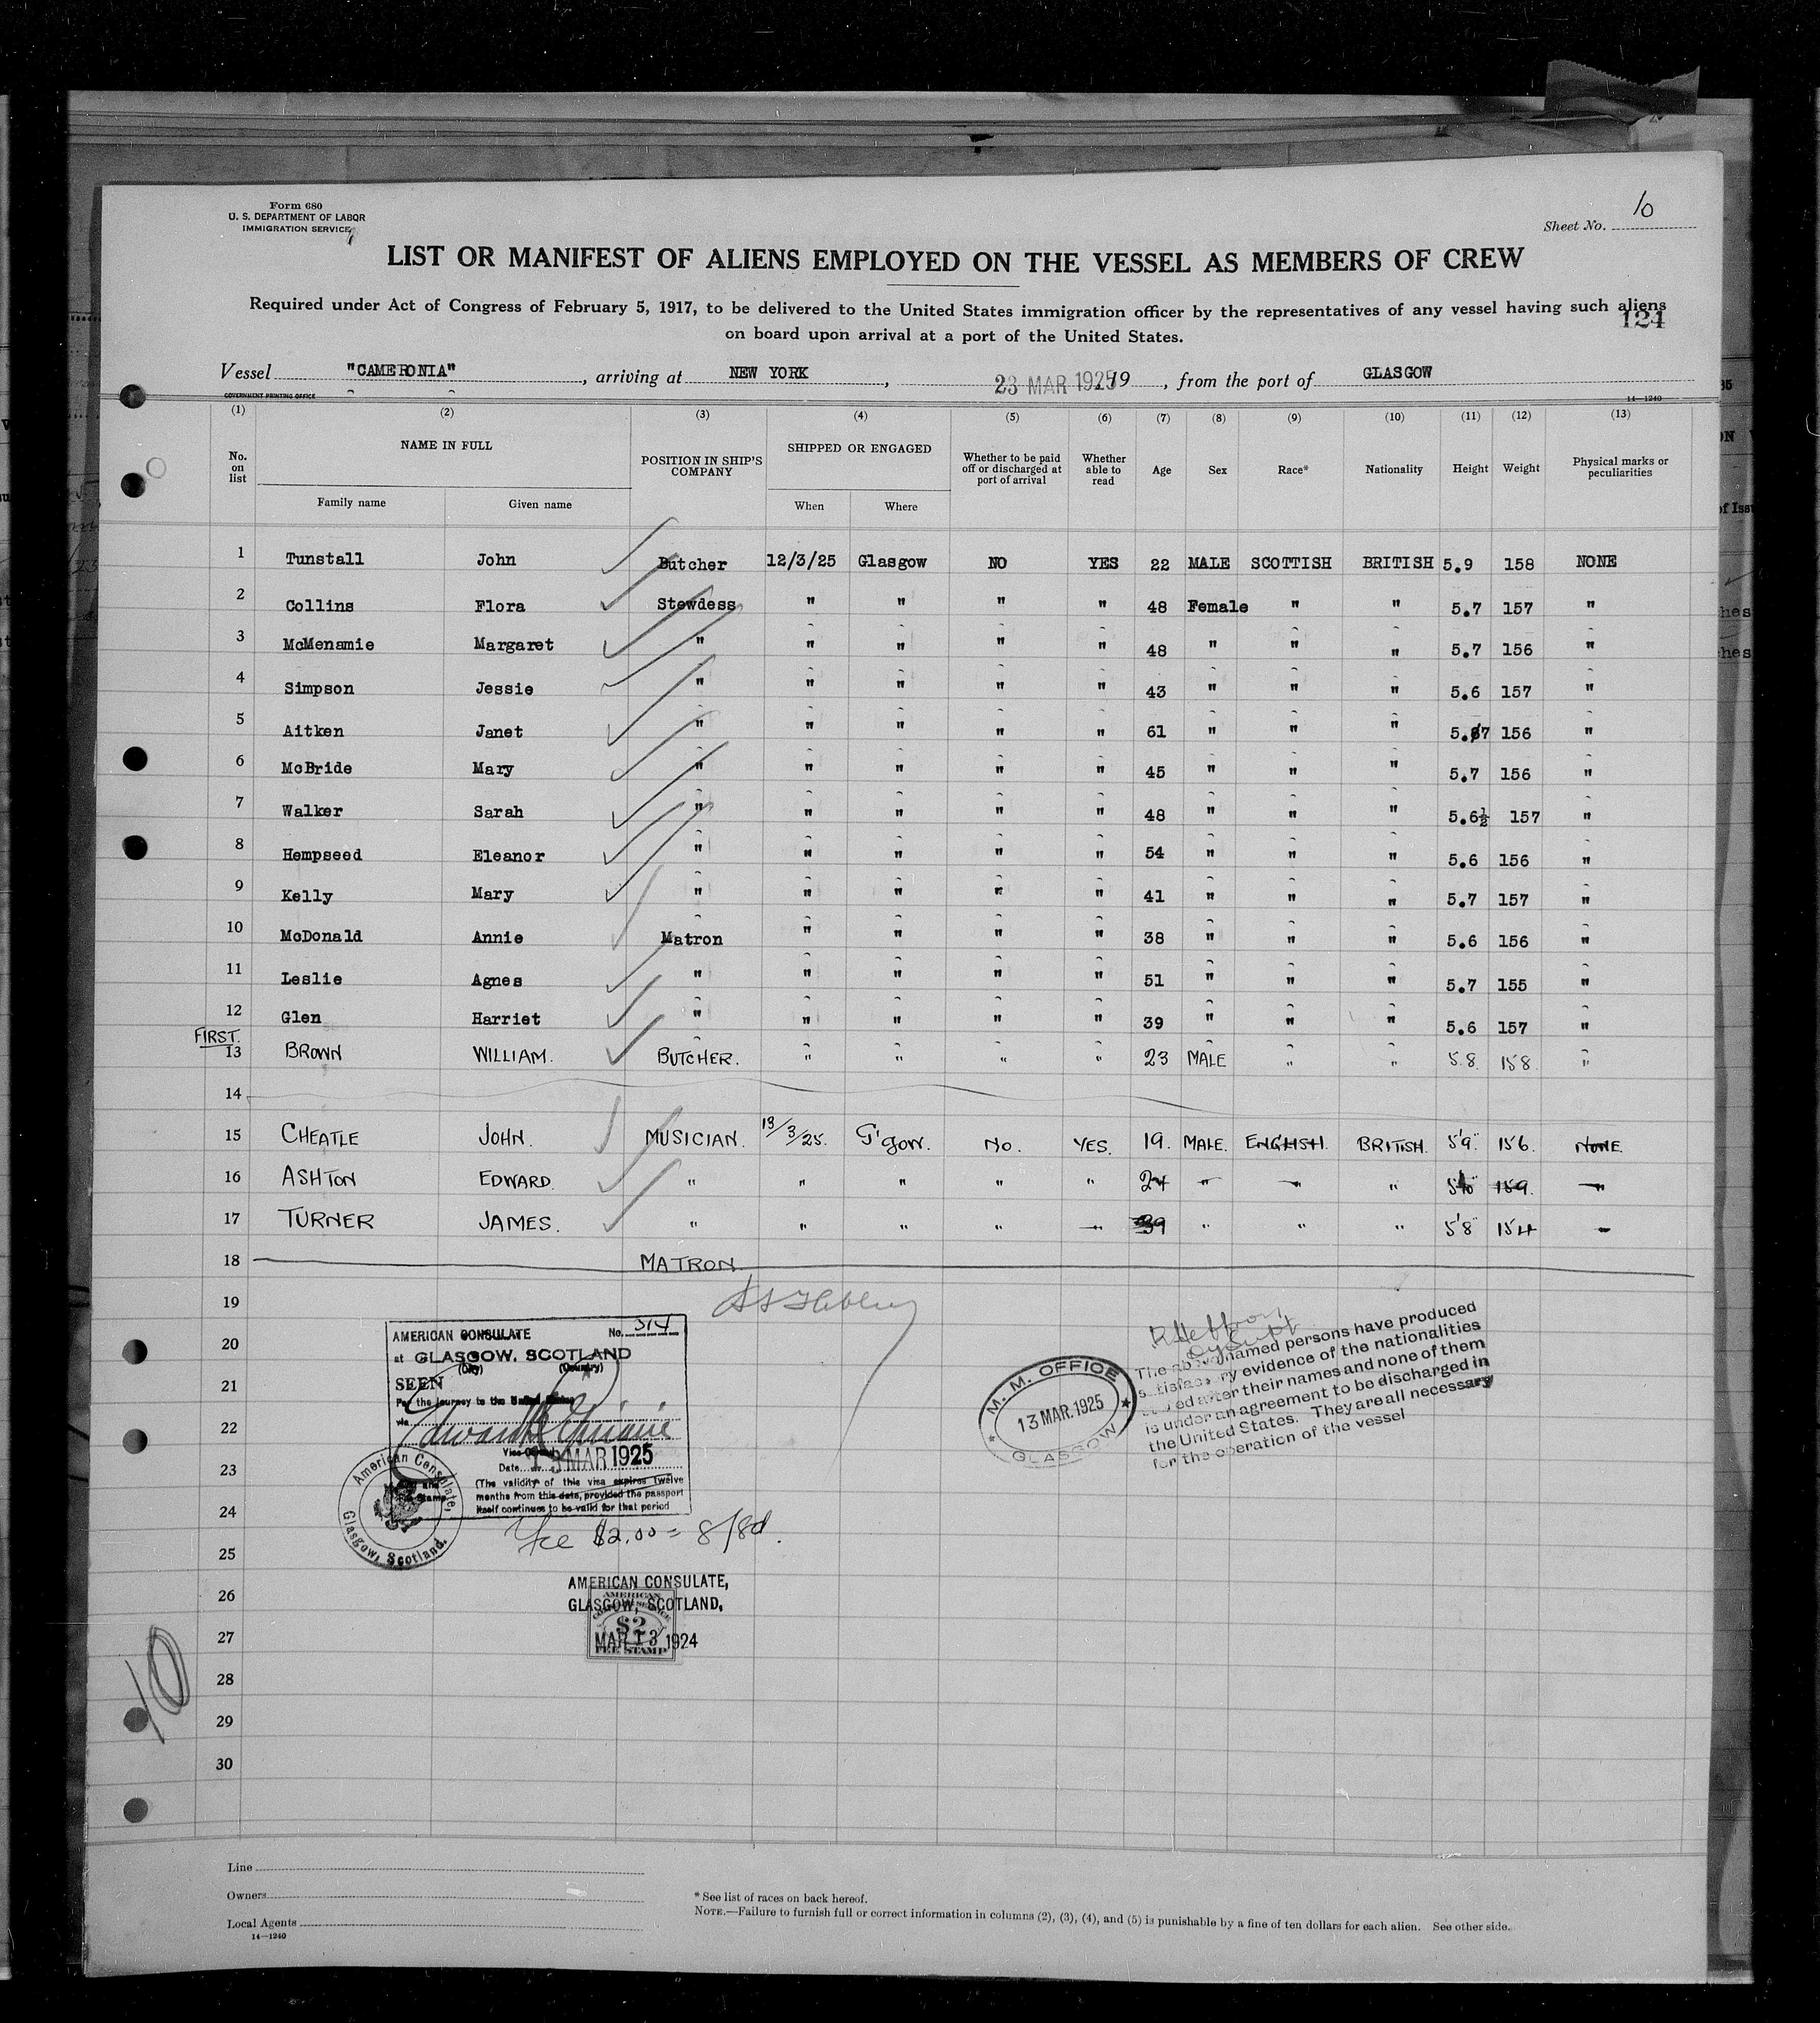 Form 680
U. S. DEPARTMENT OF LABOR
IMMIGRATION SERVICE
Sheet No. 10
LIST OR MANIFEST OF ALIENS EMPLOYED ON THE VESSEL AS MEMBERS OF CREW
Required under Act of Congress of February 5, 1917, to be delivered to the United States immigration officer by the representatives of any vessel having such aliens
on board upon arrival at a port of the United States.
124
Vessel "CAMERONIA", arriving at NEW YORK, 23 MAR 1925 19, from the port of GLASGOW
GOVERNMENT PRINTING OFFICE
14—1240
(1) (2) (3) (4) (5) (6) (7) (8) (9) (10) (11) (12) (13)
No. on list NAME IN FULL POSITION IN SHIP'S COMPANY SHIPPED OR ENGAGED Whether to be paid off or discharged at port of arrival Whether able to read Age Sex Race* Nationality Height Weight Physical marks or peculiarities
Family name Given name When Where
1 Tunstall John Butcher 12/3/25 Glasgow NO YES 22 MALE SCOTTISH BRITISH 5.9 158 NONE
2 Collins Flora Stewdess " " " " 48 Female " " 5.7 157 "
3 McMenamie Margaret " " " " " 48 " " " 5.7 156 "
4 Simpson Jessie " " " " " 43 " " " 5.6 157 "
5 Aitken Janet " " " " " 61 " " " 5.7 156 "
6 McBride Mary " " " " " 45 " " " 5.7 156 "
7 Walker Sarah " " " " " 48 " " " 5.6½ 157 "
8 Hempseed Eleanor " " " " " 54 " " " 5.6 156 "
9 Kelly Mary " " " " " 41 " " " 5.7 157 "
10 McDonald Annie Matron " " " " 38 " " " 5.6 156 "
11 Leslie Agnes " " " " " 51 " " " 5.7 155 "
12 Glen Harriet " " " " " 39 " " " 5.6 157 "
FIRST.
13 BROWN WILLIAM. BUTCHER. " " " " 23 MALE " " 5.8 158 "
14
15 CHEATLE JOHN. MUSICIAN. 13/3/25. G'gow. No. YES. 19. MALE. ENGLISH. BRITISH. 5'9" 156. NONE.
16 ASHTON EDWARD. " " " " " 24 " " " 5'10" 159. "
17 TURNER JAMES. " " " " " 39 " " " 5'8" 154 "
18 MATRON
19
20
21
22
23
24
25
26
27
28
29
30
AMERICAN CONSULATE No. 314
at GLASGOW, SCOTLAND
(City) (Country)
SEEN
For the journey to the United States
via
Date 13 MAR 1925
(The validity of this visa expires twelve
months from this date, provided the passport
itself continues to be valid for that period
American Consulate, Glasgow, Scotland.
Fee $2.00 = 8/8d.
AMERICAN CONSULATE,
GLASGOW, SCOTLAND,
MAR 13 1924
AMERICAN
$2
FEE STAMP
M. M. OFFICE
13 MAR. 1925
GLASGOW
The above named persons have produced
satisfactory evidence of the nationalities
stated after their names and none of them
is under an agreement to be discharged in
the United States. They are all necessary
for the operation of the vessel
10
Line
Owners
Local Agents
14—1240
* See list of races on back hereof.
NOTE.—Failure to furnish full or correct information in columns (2), (3), (4), and (5) is punishable by a fine of ten dollars for each alien. See other side.